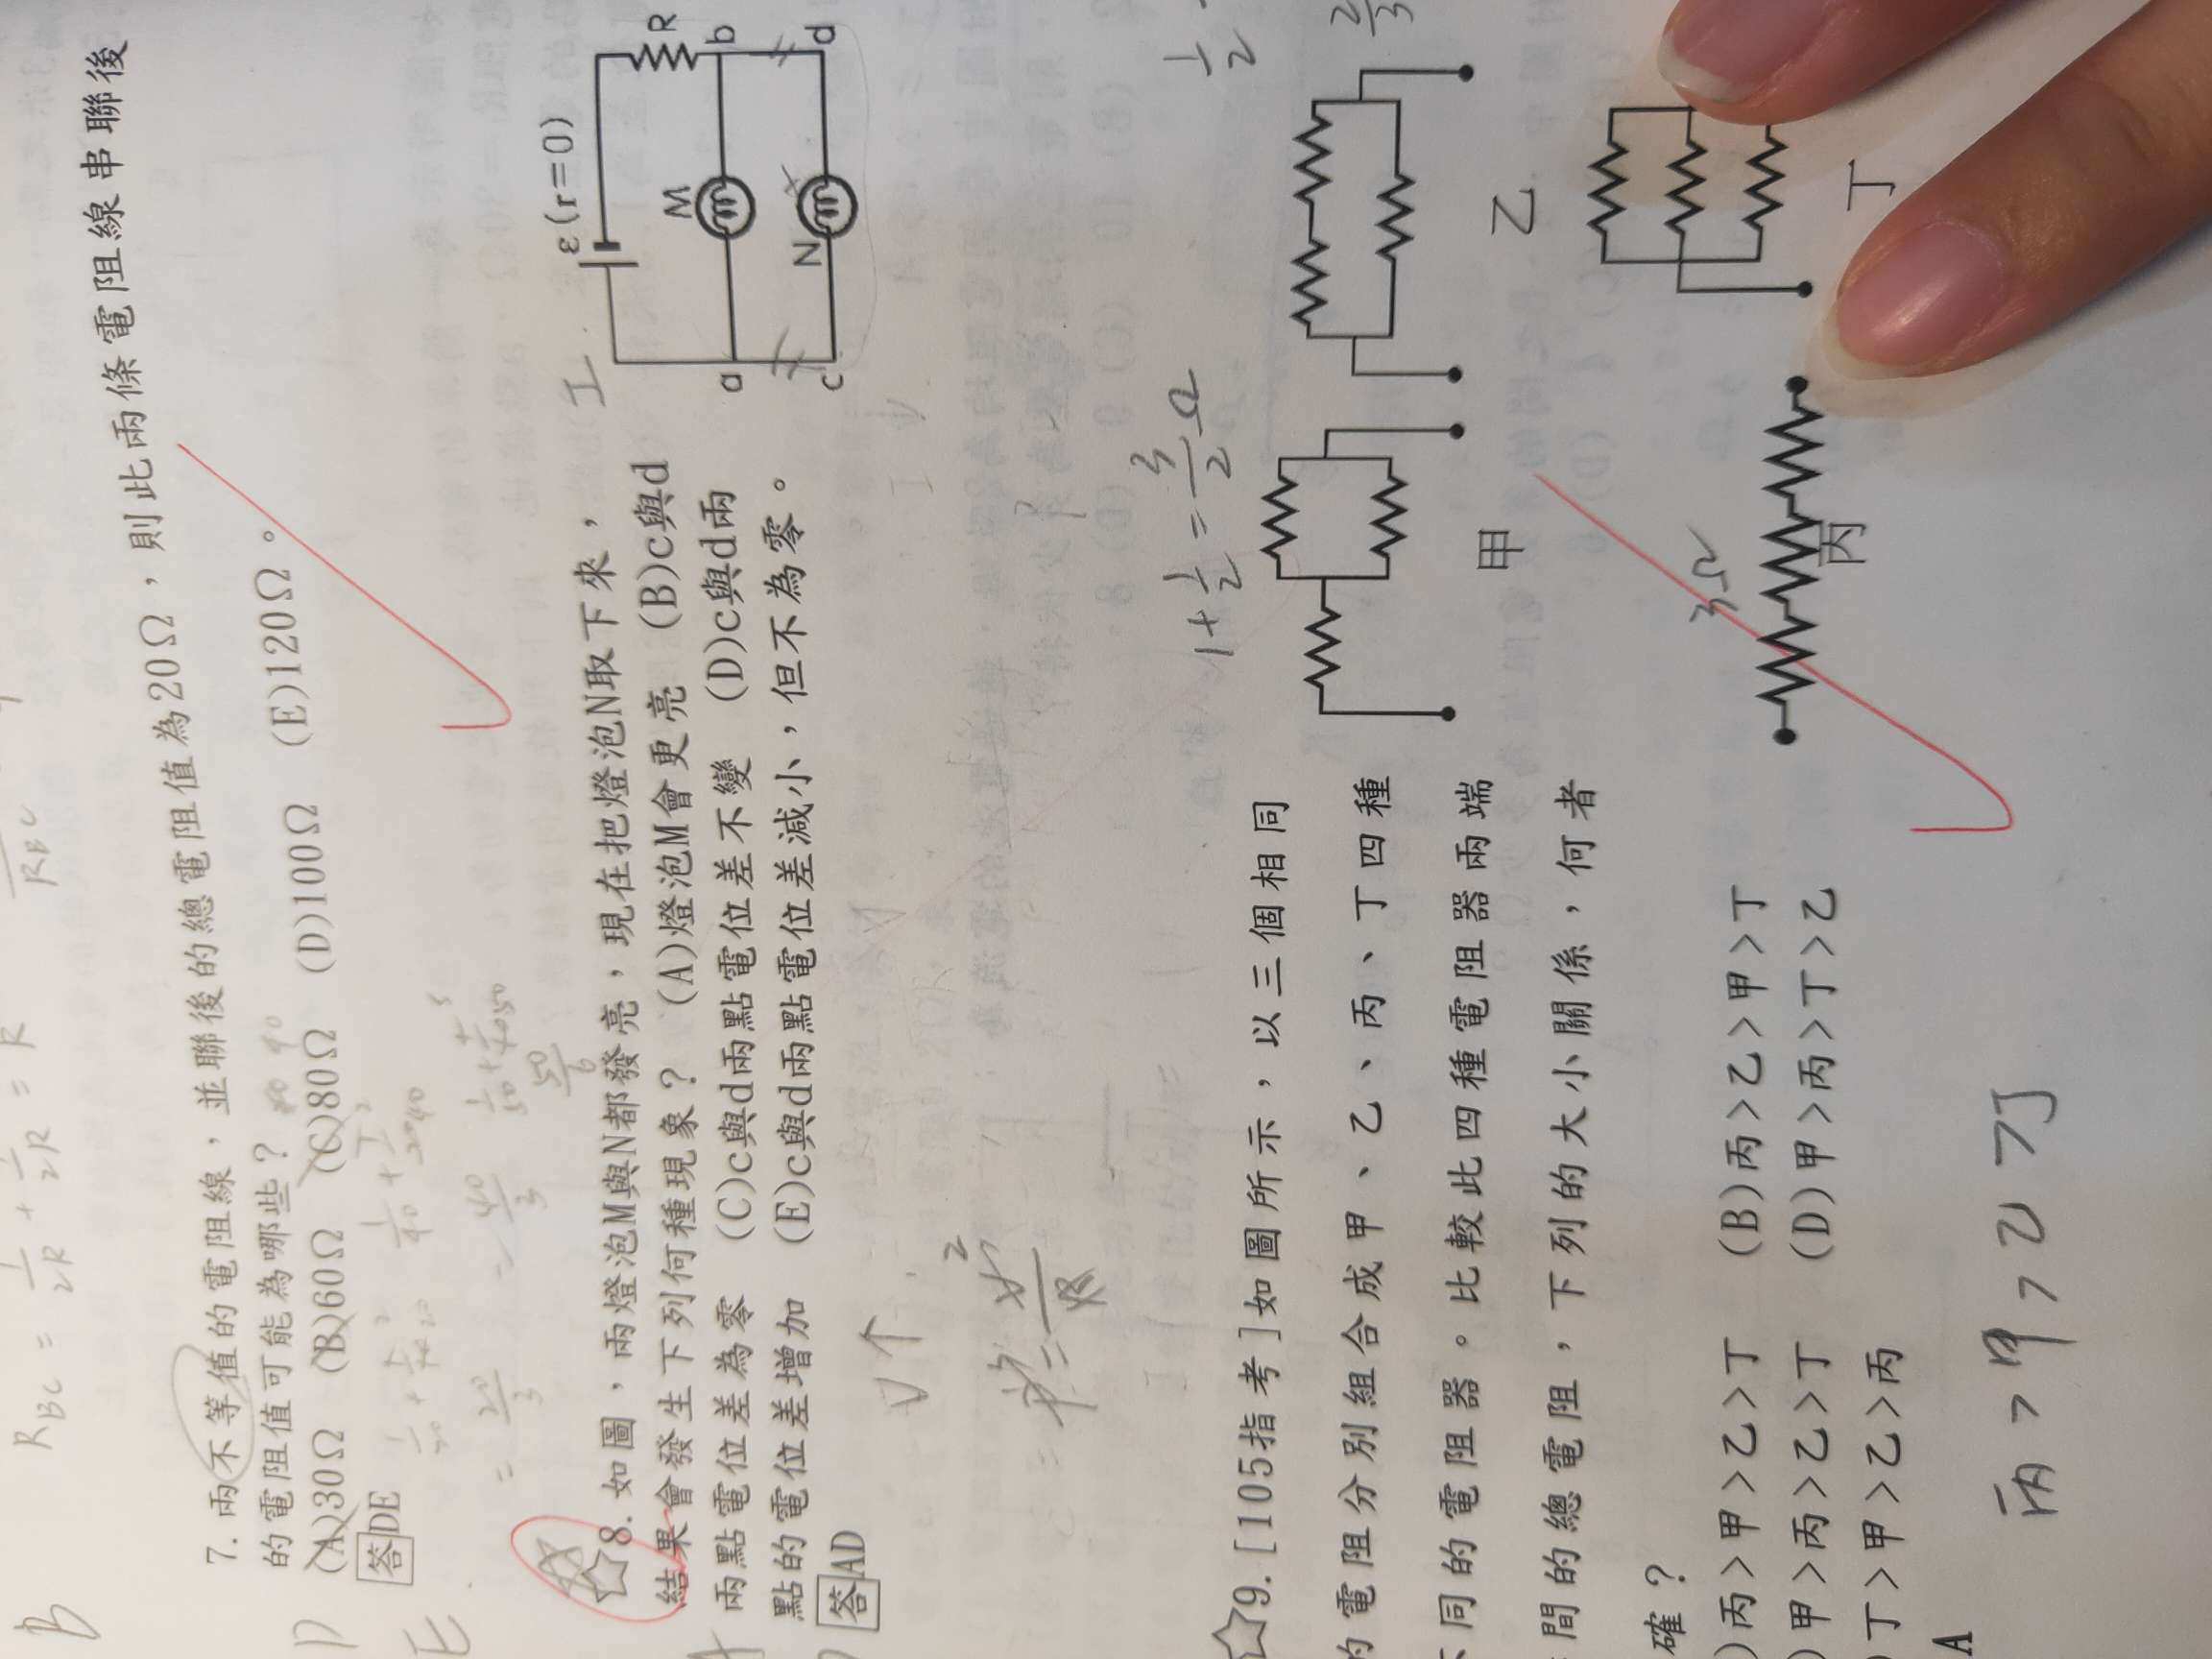 R_BC = 1/2R + 1/2R = R
R_BC
B
7. 兩不等值的電阻線，並聯後的總電阻值為20Ω，則此兩條電阻線串聯後
的電阻值可能為哪些？
(A)30Ω (B)60Ω (C)80Ω (D)100Ω (E)120Ω。
答DE
D
E
= 20/3 = 40/3
50/6
☆8. 如圖，兩燈泡M與N都發亮，現在把燈泡N取下來，
結果會發生下列何種現象？ (A)燈泡M會更亮 (B)c與d
兩點電位差為零 (C)c與d兩點電位差不變 (D)c與d兩
點的電位差增加 (E)c與d兩點電位差減小，但不為零。
答AD
ε(r=0)
R
M
a
b
N
c
d
I
V↑
☆9. [105指考]如圖所示，以三個相同
的電阻分別組合成甲、乙、丙、丁四種
不同的電阻器。比較此四種電阻器兩端
間的總電阻，下列的大小關係，何者
確？
)丙＞甲＞乙＞丁 (B)丙＞乙＞甲＞丁
)甲＞丙＞乙＞丁 (D)甲＞丙＞丁＞乙
)丁＞甲＞乙＞丙
A
1+1/2=3/2Ω
1/2
2/3
甲
乙
3Ω
丙
丁
丙>甲>乙>丁